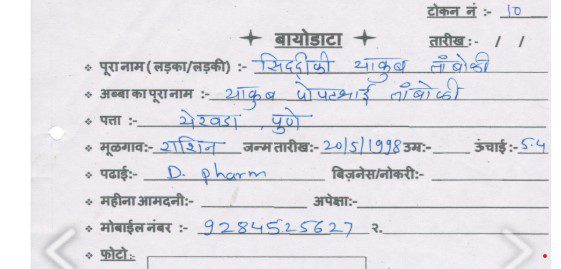 टोकन नं :- 10
बायोडाटा
तारीख :- / /
पूरा नाम ( लड़का/लड़की) :- सिद्दीकी याकुब तांबोळी
अब्बा का पूरा नाम :- याकुब पोपटभाई तांबोळी
पत्ता :- येरवडा, पुणे
मूळगाव:- राशिन जन्म तारीख:- 20/5/1998 उम्र:- ऊंचाई :- 5.4
पढाई:- D. pharm बिज़नेस/नोकरी:-
महीना आमदनी:- अपेक्षा:-
मोबाईल नंबर :- 9284525627 २.
फ़ोटो:-